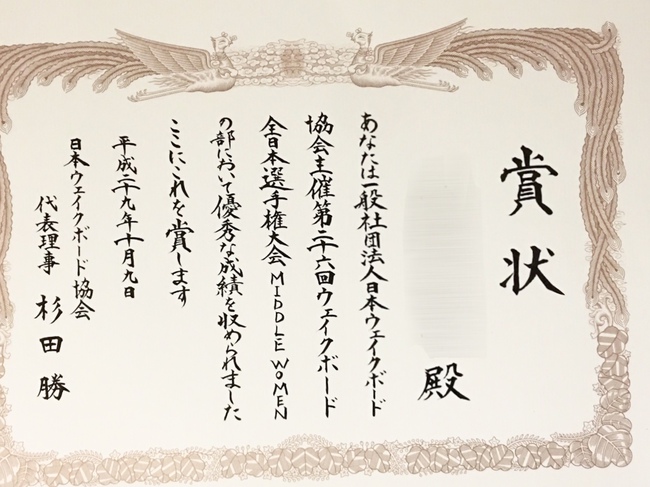 賞状
殿
あなたは一般社団法人日本ウェイクボード
協会主催第二十六回ウェイクボード
全日本選手権大会MIDDLE WOMEN
の部において優秀な成績を収められました
ここにこれを賞します
平成二十九年十月九日
日本ウェイクボード協会
代表理事 杉田勝